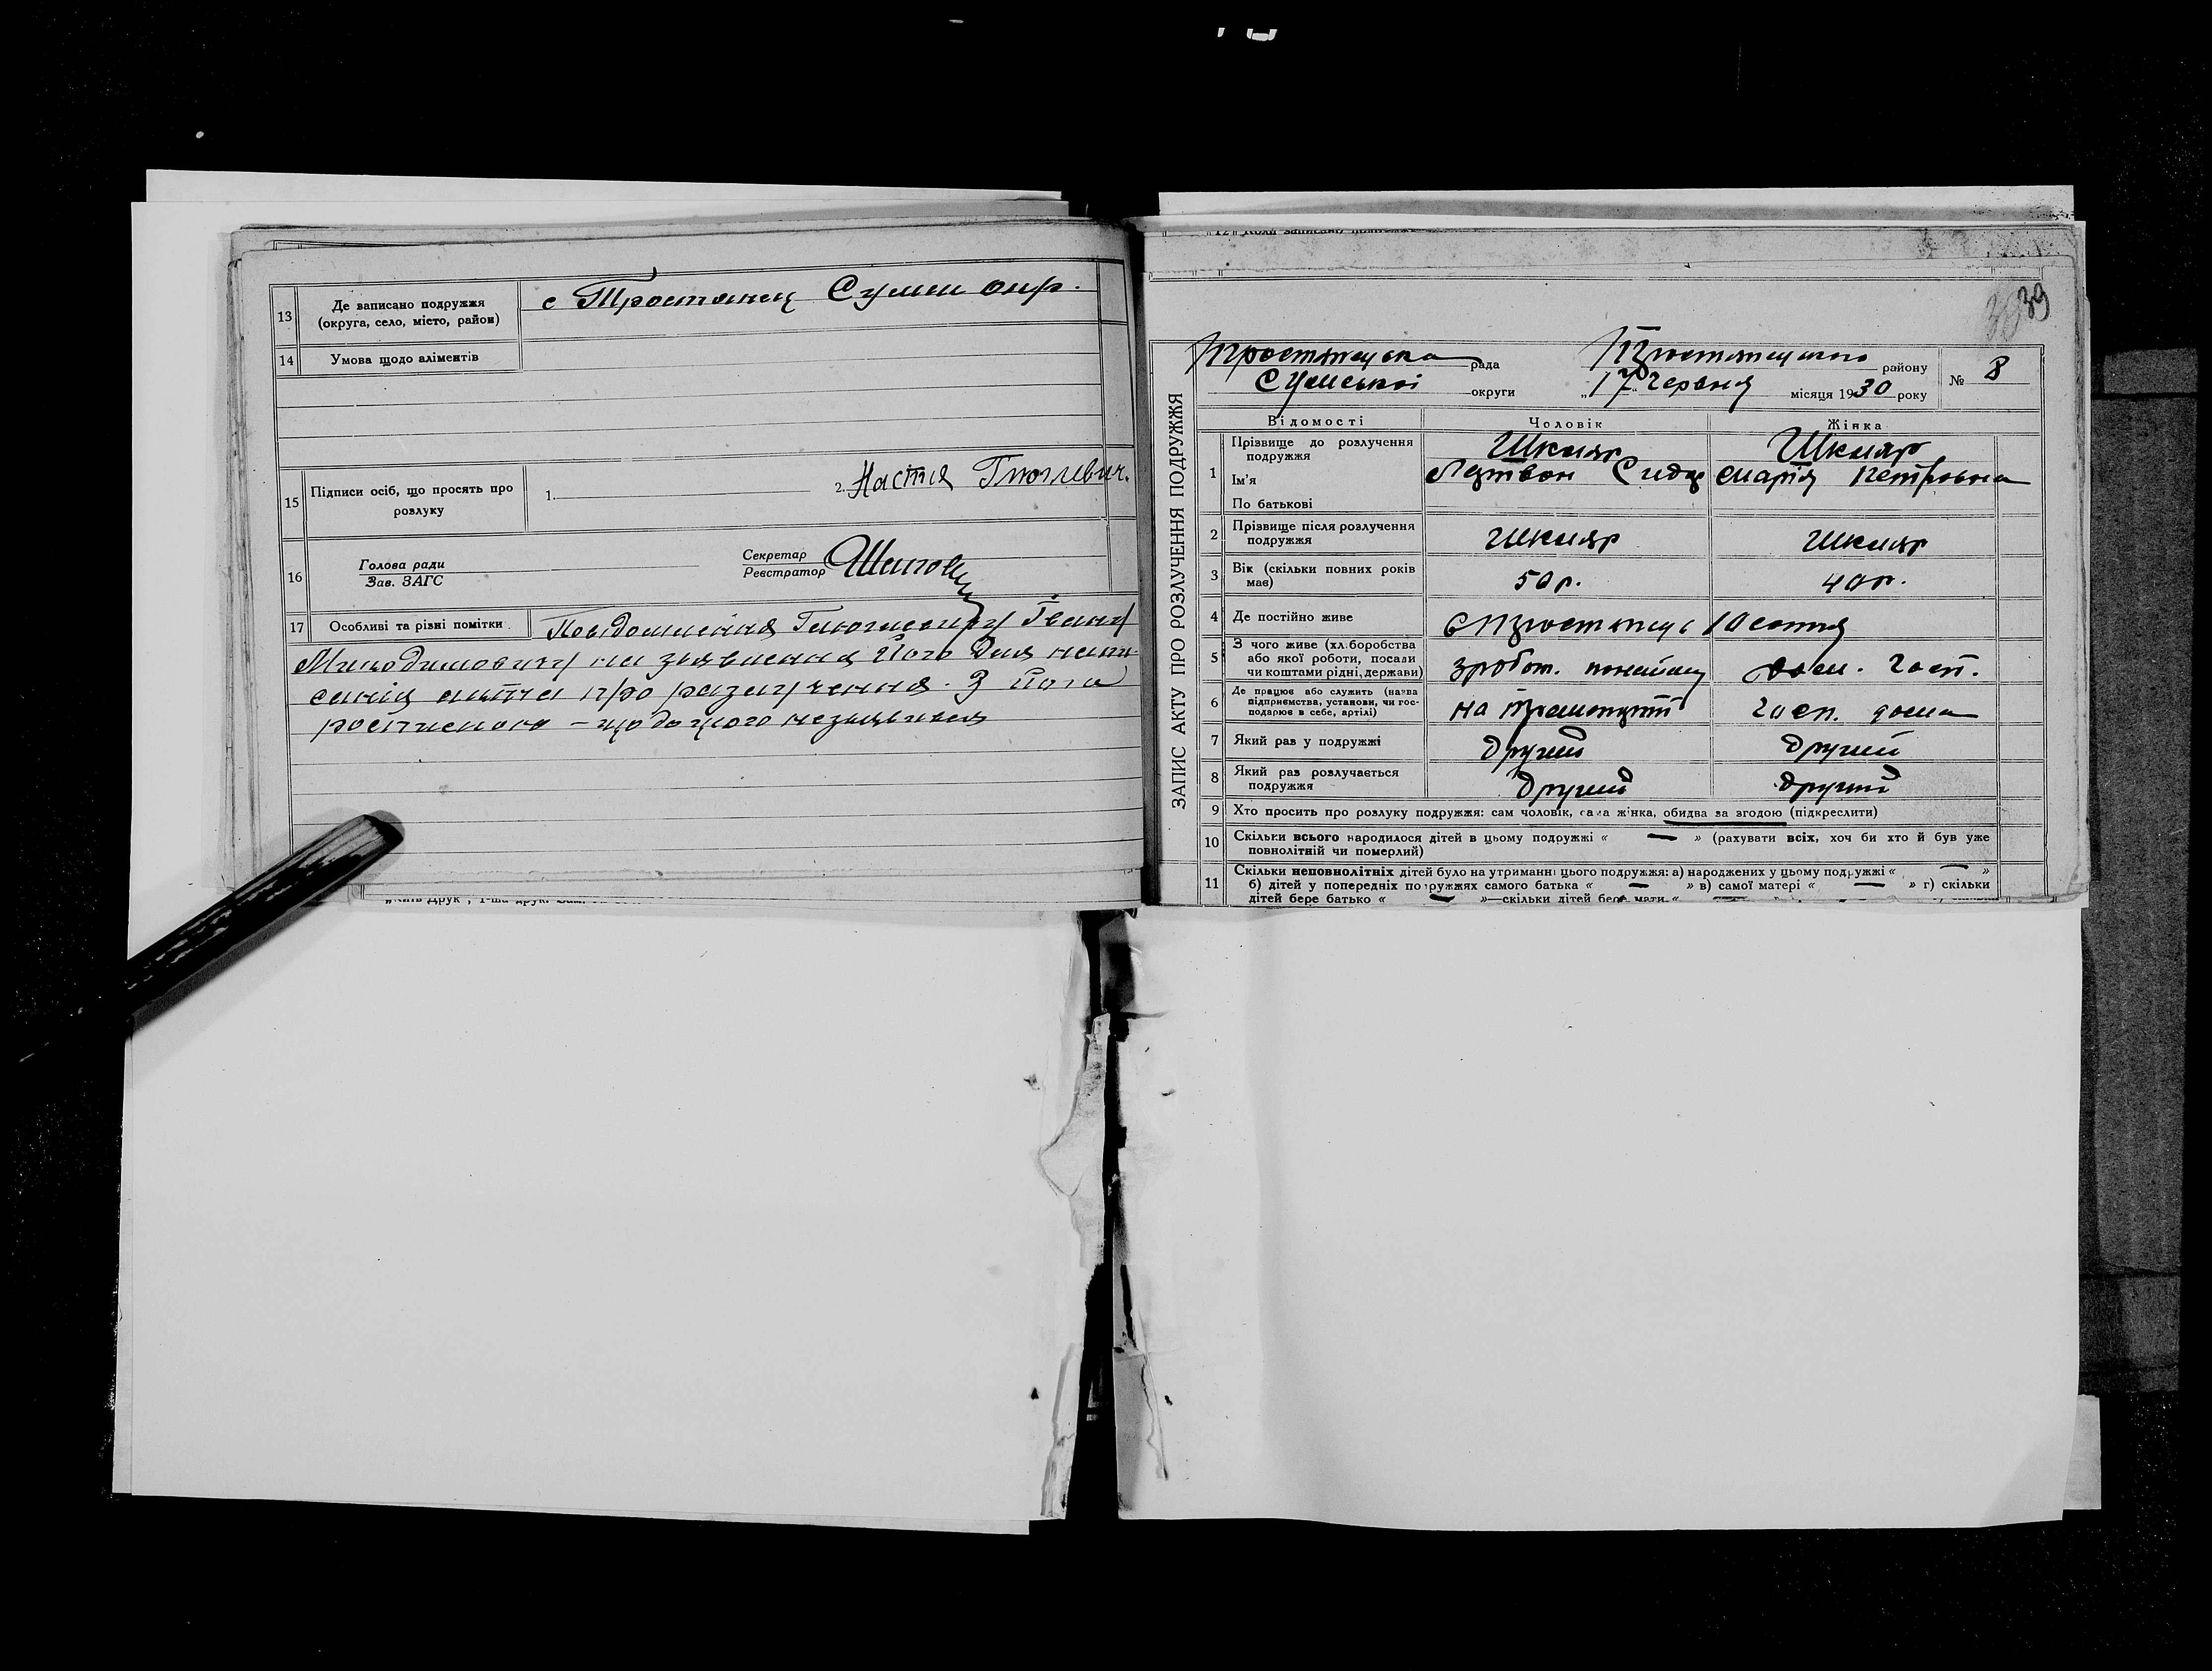 13 Де записано подружжя (округа, село, місто, район) с Тростянец Сумш окр.
14 Умова щодо аліментів
15 Підписи осіб, що просять про розлуку 1. 2. Настя
16 Голова ради Зав. ЗАГС Секретар Реєстратор
17 Особливі та різні помітки Повідомлення Івану
на заявлення його для напи-
санія акта про разлучення. З його
роспискою – що до цього
12 Коли записано подружжя
39
Тростянецька рада Тростянецького району № 8
Сумської округи „17" червня місяця 1930 року
ЗАПИС АКТУ ПРО РОЗЛУЧЕННЯ ПОДРУЖЖЯ
Відомості Чоловік Жінка
1 Прізвище до розлучення подружжя Шкляр Шкляр
Ім'я Сидор Марія Петровна
По батькові
2 Прізвище після розлучення подружжя Шкляр Шкляр
3 Вік (скільки повних років має) 50 р. 40 р.
4 Де постійно живе с Тростянец 10 сотня
5 З чого живе (хл.боробства або якої роботи, посади чи коштами рідні, держави) зробот. дом. госп.
6 Де працює або служить (назва підприємства, установи, чи господарює в себе, артілі) на госп. дома
7 Який раз у подружжі другий другий
8 Який раз розлучається подружжя другий другий
9 Хто просить про розлуку подружжя: сам чоловік, сама жінка, обидва за згодою (підкреслити)
10 Скільки всього народилося дітей в цьому подружжі « — » (рахувати всіх, хоч би хто й був уже
повнолітній чи померлий)
11 Скільки неповнолітніх дітей було на утриманні цього подружжя: а) народжених у цьому подружжі « — »
б) дітей у попередніх подружжях самого батька « — » в) самої матері « — » г) скільки
дітей бере батько « — »—скільки дітей бере мати «